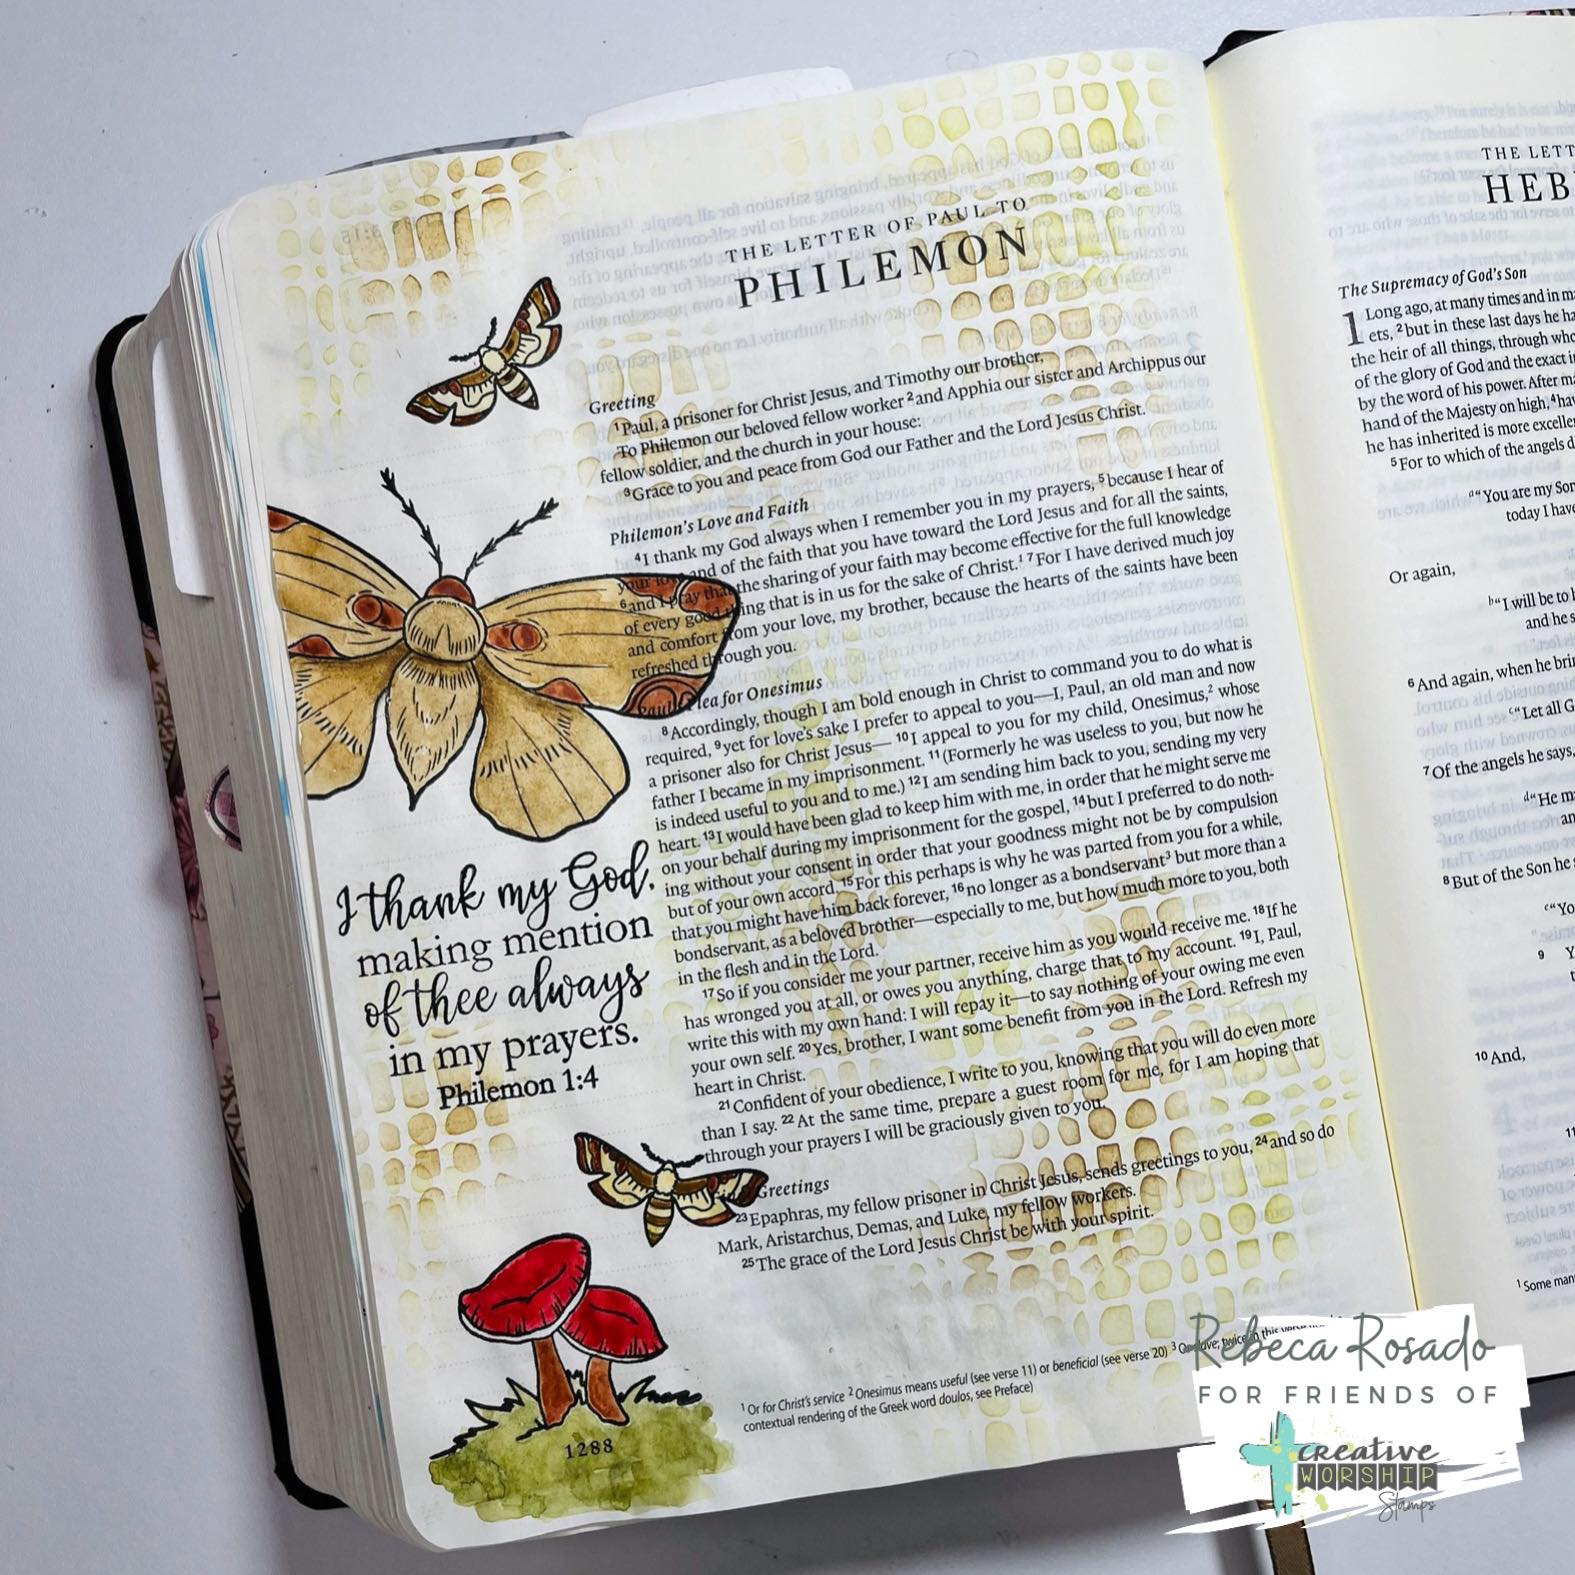 THE LETTER OF PAUL TO
PHILEMON
Greeting
1 Paul, a prisoner for Christ Jesus, and Timothy our brother,
To Philemon our beloved fellow worker 2 and Apphia our sister and Archippus our
fellow soldier, and the church in your house:
3 Grace to you and peace from God our Father and the Lord Jesus Christ.
Philemon's Love and Faith
4 I thank my God always when I remember you in my prayers, 5 because I hear of
your love and of the faith that you have toward the Lord Jesus and for all the saints,
6 and I pray that the sharing of your faith may become effective for the full knowledge
of every good thing that is in us for the sake of Christ.1 7 For I have derived much joy
and comfort from your love, my brother, because the hearts of the saints have been
refreshed through you.
Paul's Plea for Onesimus
8 Accordingly, though I am bold enough in Christ to command you to do what is
required, 9 yet for love's sake I prefer to appeal to you—I, Paul, an old man and now
a prisoner also for Christ Jesus— 10 I appeal to you for my child, Onesimus,2 whose
father I became in my imprisonment. 11 (Formerly he was useless to you, but now he
is indeed useful to you and to me.) 12 I am sending him back to you, sending my very
heart. 13 I would have been glad to keep him with me, in order that he might serve me
on your behalf during my imprisonment for the gospel, 14 but I preferred to do noth-
ing without your consent in order that your goodness might not be by compulsion
but of your own accord. 15 For this perhaps is why he was parted from you for a while,
that you might have him back forever, 16 no longer as a bondservant3 but more than a
bondservant, as a beloved brother—especially to me, but how much more to you, both
in the flesh and in the Lord.
17 So if you consider me your partner, receive him as you would receive me. 18 If he
has wronged you at all, or owes you anything, charge that to my account. 19 I, Paul,
write this with my own hand: I will repay it—to say nothing of your owing me even
your own self. 20 Yes, brother, I want some benefit from you in the Lord. Refresh my
heart in Christ.
21 Confident of your obedience, I write to you, knowing that you will do even more
than I say. 22 At the same time, prepare a guest room for me, for I am hoping that
through your prayers I will be graciously given to you.
Greetings
23 Epaphras, my fellow prisoner in Christ Jesus, sends greetings to you, 24 and so do
Mark, Aristarchus, Demas, and Luke, my fellow workers.
25 The grace of the Lord Jesus Christ be with your spirit.
1 Or for Christ's service 2 Onesimus means useful (see verse 11) or beneficial (see verse 20) 3
contextual rendering of the Greek word doulos, see Preface)
I thank my God,
making mention
of thee always
in my prayers.
Philemon 1:4
1288
THE LETT
HEB
The Supremacy of God's Son
1 Long ago, at many times and in m
ets, 2 but in these last days he ha
the heir of all things, through who
of the glory of God and the exact i
by the word of his power. After ma
hand of the Majesty on high, 4 hav
he has inherited is more excelle
5 For to which of the angels d
a "You are my Son
today I have
Or again,
b "I will be to h
and he s
6 And again, when he brin
c "Let all G
7 Of the angels he says,
d "He ma
an
8 But of the Son he s
e "Yo
9
10 And,
11
1 Some man
Rebeca Rosado
FOR FRIENDS OF
CREATIVE
WORSHIP
Stamps